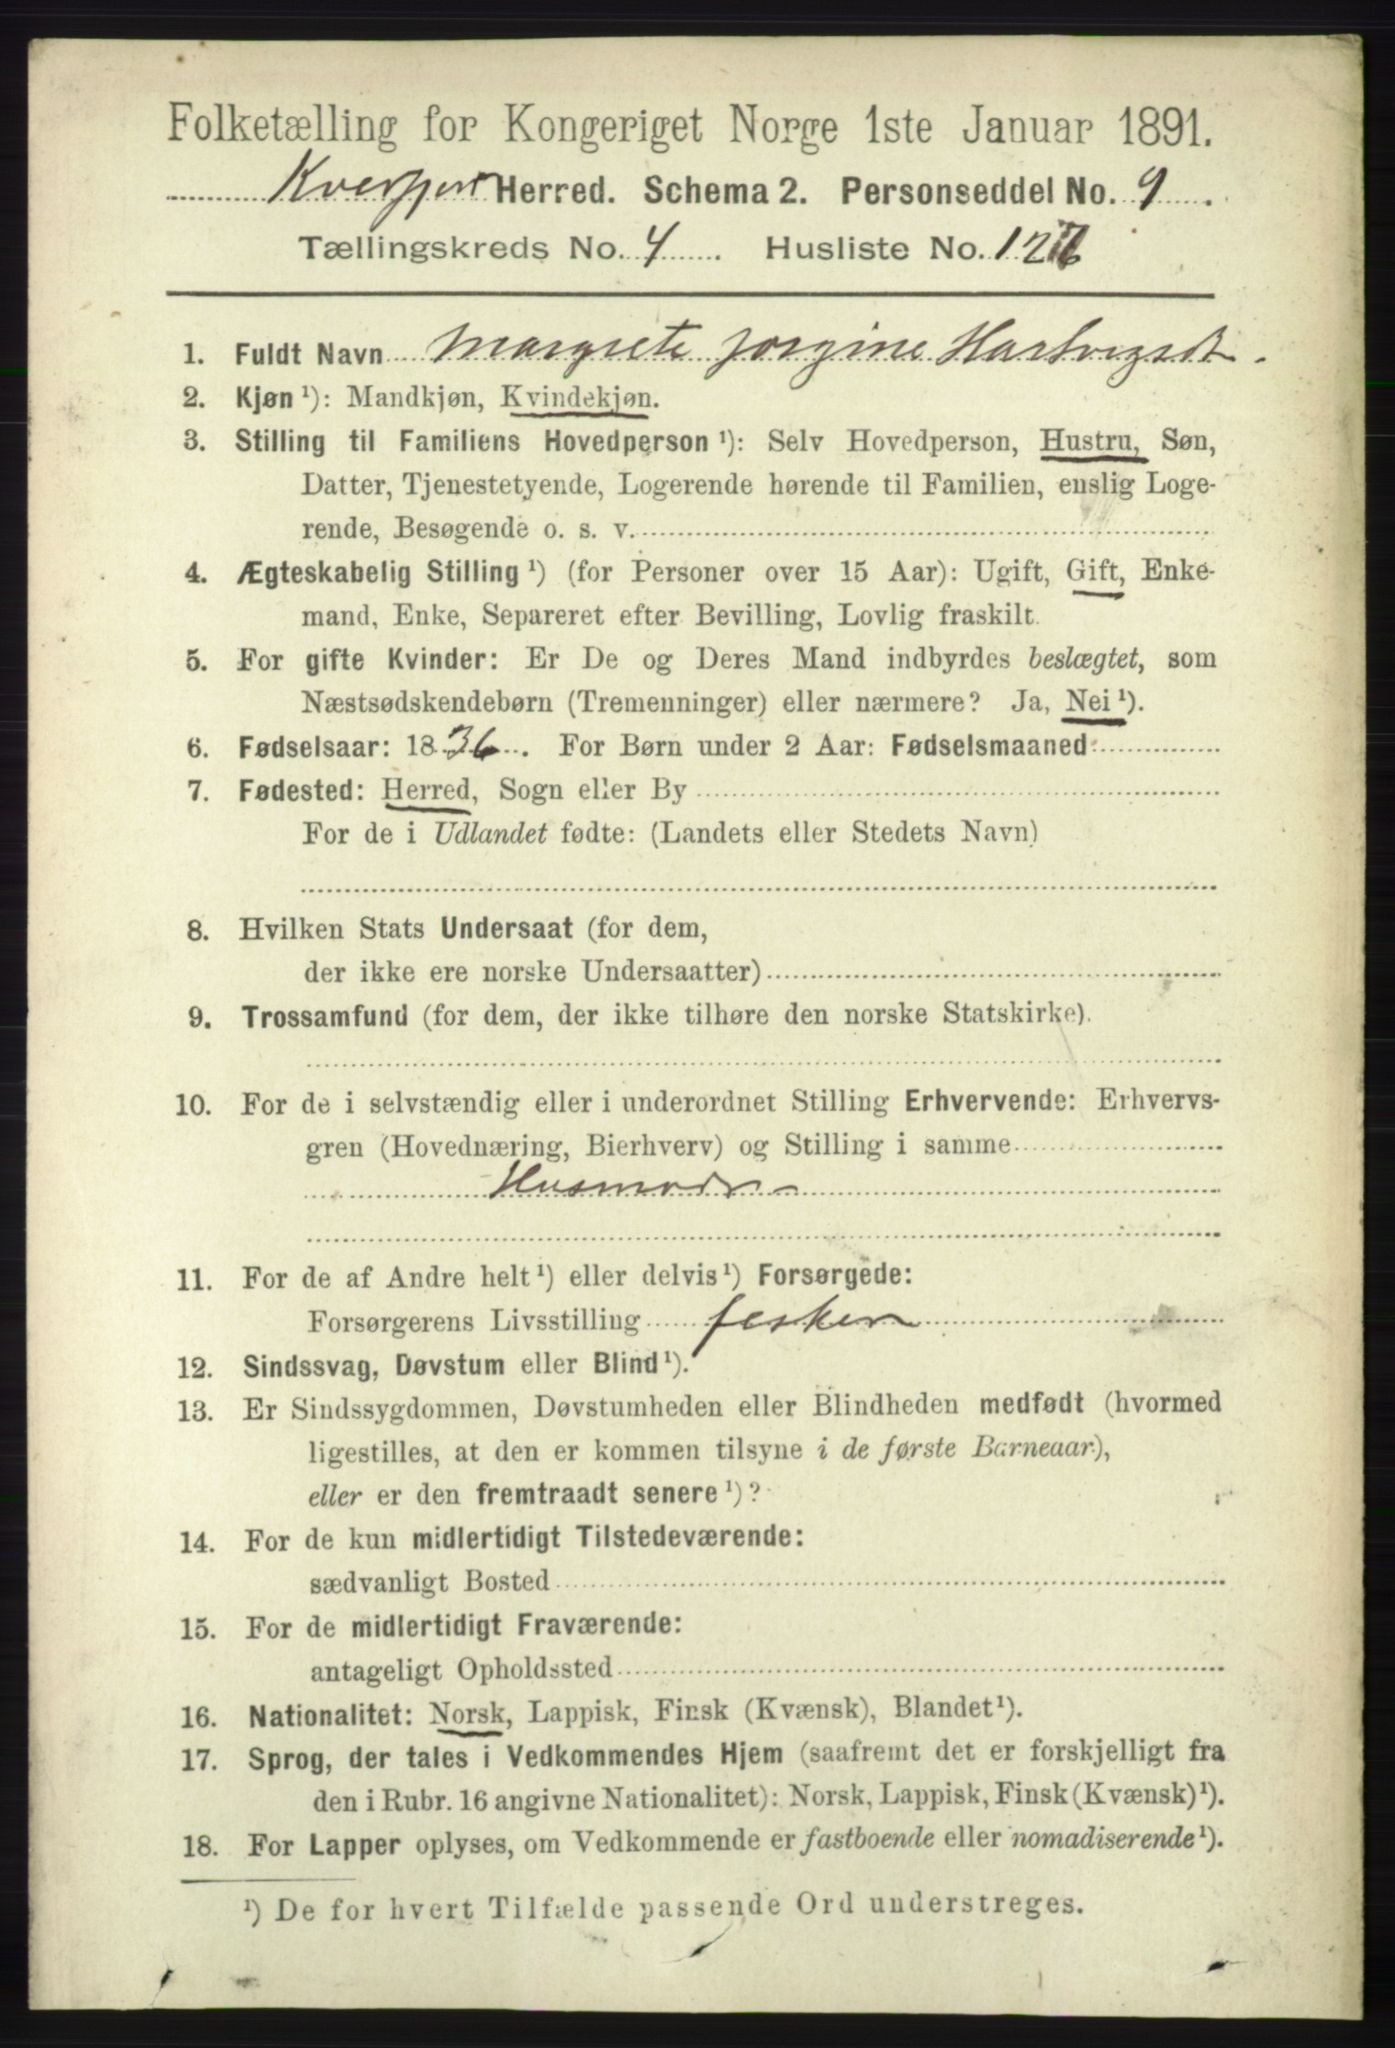 Folketælling for Kongeriget Norge 1ste Januar 1891.
Herred. Schema 2. Personseddel No. 9.
Tællingskreds No. 4. Husliste No. 126
1. Fuldt Navn Margrete Jorgine Hartvigsdt.
2. Kjøn ¹): Mandkjøn, Kvindekjøn.
3. Stilling til Familiens Hovedperson ¹): Selv Hovedperson, Hustru, Søn,
Datter, Tjenestetyende, Logerende hørende til Familien, enslig Loge-
rende, Besøgende o. s. v.
4. Ægteskabelig Stilling ¹) (for Personer over 15 Aar): Ugift, Gift, Enke-
mand, Enke, Separeret efter Bevilling, Lovlig fraskilt.
5. For gifte Kvinder: Er De og Deres Mand indbyrdes beslægtet, som
Næstsødskendebørn (Tremenninger) eller nærmere? Ja, Nei ¹).
6. Fødselsaar: 1836. For Børn under 2 Aar: Fødselsmaaned
7. Fødested: Herred, Sogn eller By
For de i Udlandet fødte: (Landets eller Stedets Navn)
8. Hvilken Stats Undersaat (for dem,
der ikke ere norske Undersaatter)
9. Trossamfund (for dem, der ikke tilhøre den norske Statskirke).
10. For de i selvstændig eller i underordnet Stilling Erhvervende: Erhvervs-
gren (Hovednæring, Bierhverv) og Stilling i samme
Husmodr
11. For de af Andre helt ¹) eller delvis ¹) Forsørgede:
Forsørgerens Livsstilling fesker
12. Sindssvag, Døvstum eller Blind ¹).
13. Er Sindssygdommen, Døvstumheden eller Blindheden medfødt (hvormed
ligestilles, at den er kommen tilsyne i de første Barneaar),
eller er den fremtraadt senere ¹)?
14. For de kun midlertidigt Tilstedeværende:
sædvanligt Bosted
15. For de midlertidigt Fraværende:
antageligt Opholdssted
16. Nationalitet: Norsk, Lappisk, Finsk (Kvænsk), Blandet ¹).
17. Sprog, der tales i Vedkommendes Hjem (saafremt det er forskjelligt fra
den i Rubr. 16 angivne Nationalitet): Norsk, Lappisk, Finsk (Kvænsk) ¹).
18. For Lapper oplyses, om Vedkommende er fastboende eller nomadiserende ¹).
¹) De for hvert Tilfælde passende Ord understreges.